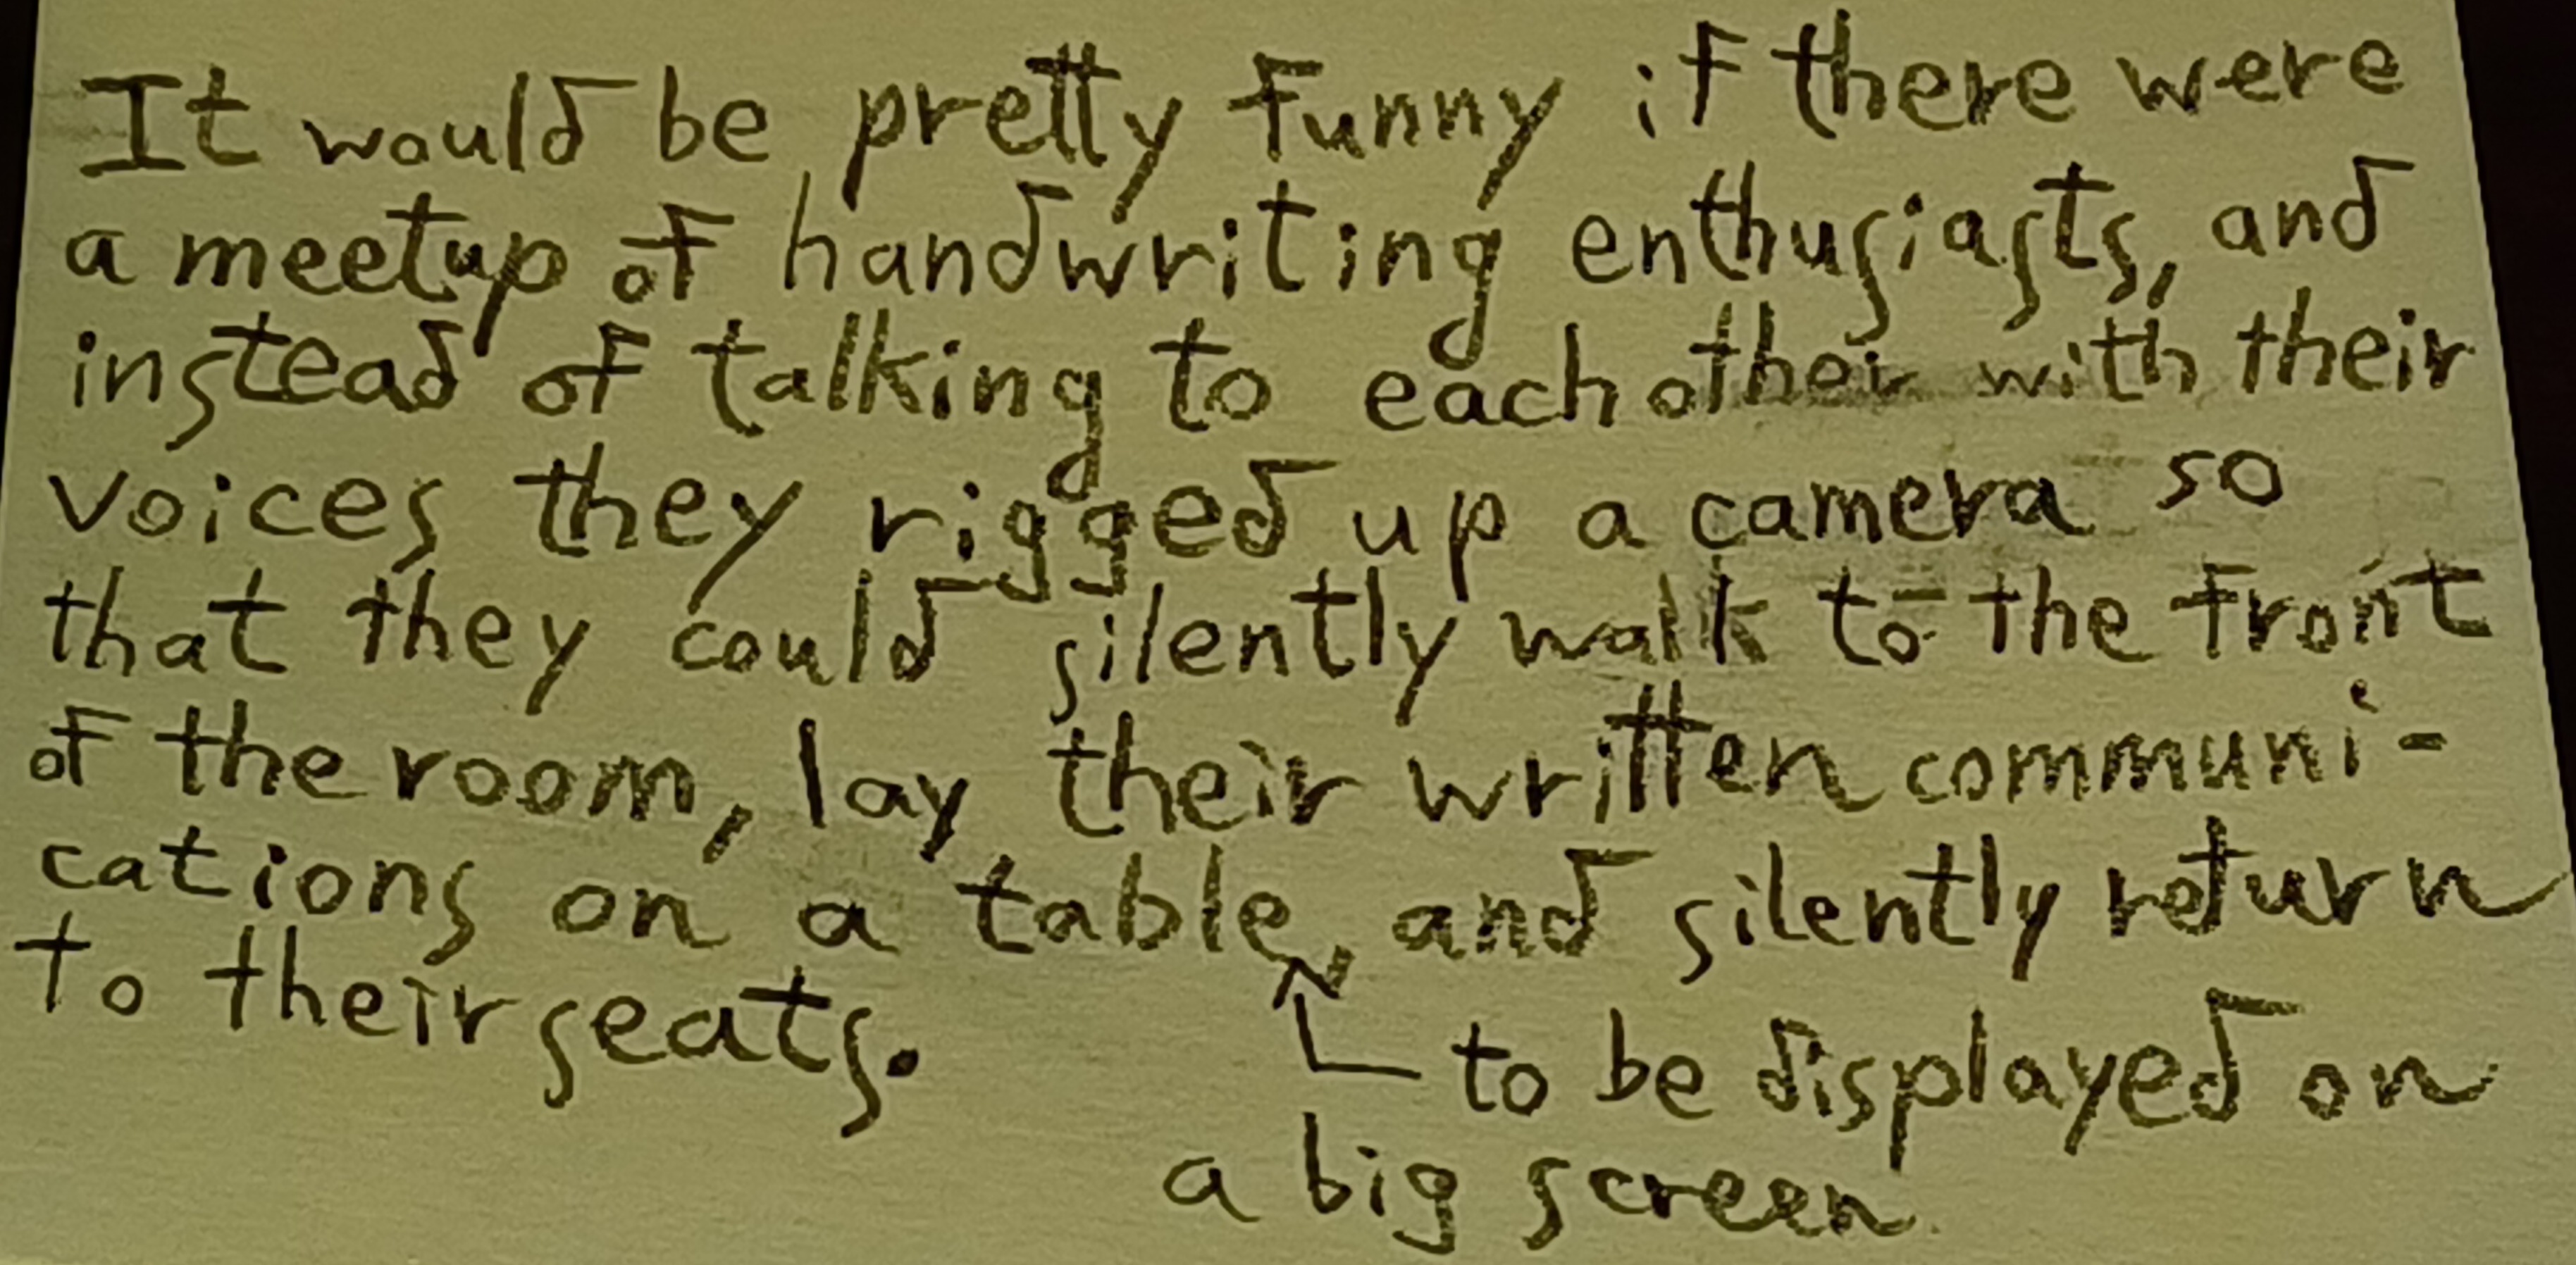 It would be pretty funny if there were
a meetup of handwriting enthusiasts, and
instead of talking to each other with their
voices they rigged up a camera so
that they could silently walk to the front
of the room, lay their written communi-
cations on a table, and silently return
to their seats.
to be displayed on
a big screen